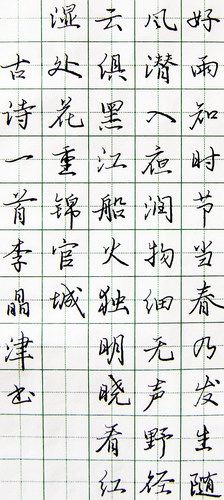 好雨知时节当春乃发生随
风潜入夜润物细无声野径
云俱黑江船火独明晓看红
湿处花重锦官城
古诗一首李晶津书